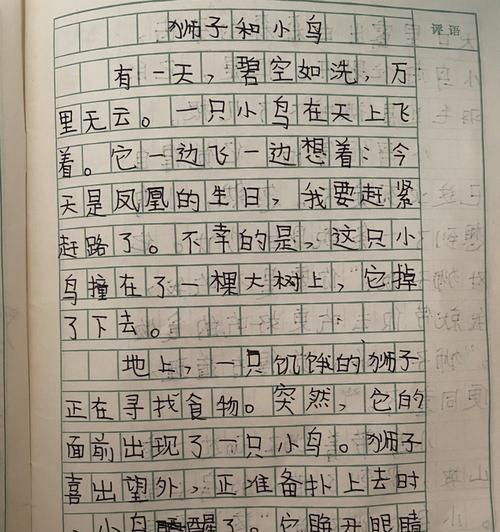 狮子和小鸟
评语
有一天，碧空如洗，万
里无云。一只小鸟在天上飞
着。它一边飞一边想着：今
天是凤凰的生日，我要赶紧
赶路了。不幸的是，这只小
鸟撞在了一棵大树上，它掉
了下去。
地上，一只饥饿的狮子
正在寻找食物。突然，它的
面前出现了一只小鸟。狮子
喜出望外，正准备扑上去时
，小鸟醒了。它睁开眼睛